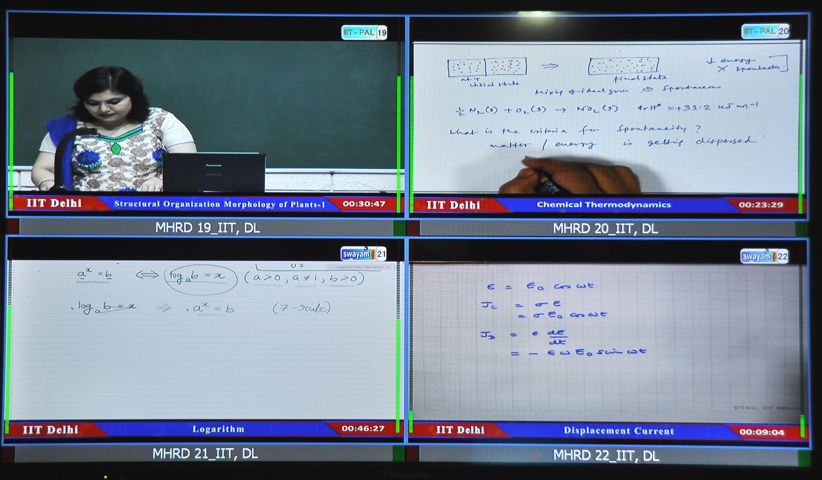 IIT-PAL 19
Panasonic
IIT Delhi Structural Organization Morphology of Plants-1 00:30:47
MHRD 19_IIT, DL
IIT-PAL 20
↓ energy
at T
initial state ⇒ final state
Mixing of ideal gases ⇒ spontaneous
½ N₂(g) + O₂(g) → NO₂(g)
What is the criteria for spontaneity?
matter / energy is getting dispersed
IIT Delhi Chemical Thermodynamics 00:23:29
MHRD 20_IIT, DL
swayam 21
aˣ = b ⇔ logₐb = x (a>0, a≠1, b>0)
logₐb = x ⇒ aˣ = b (7-rule)
IIT Delhi Logarithm 00:46:27
MHRD 21_IIT, DL
swayam 22
E = E₀ cos ωt
J_C = σ E
= σ E₀ cos ωt
J_D = ε dE/dt
= - ε ω E₀ sin ωt
IIT Delhi Displacement Current 00:09:04
MHRD 22_IIT, DL